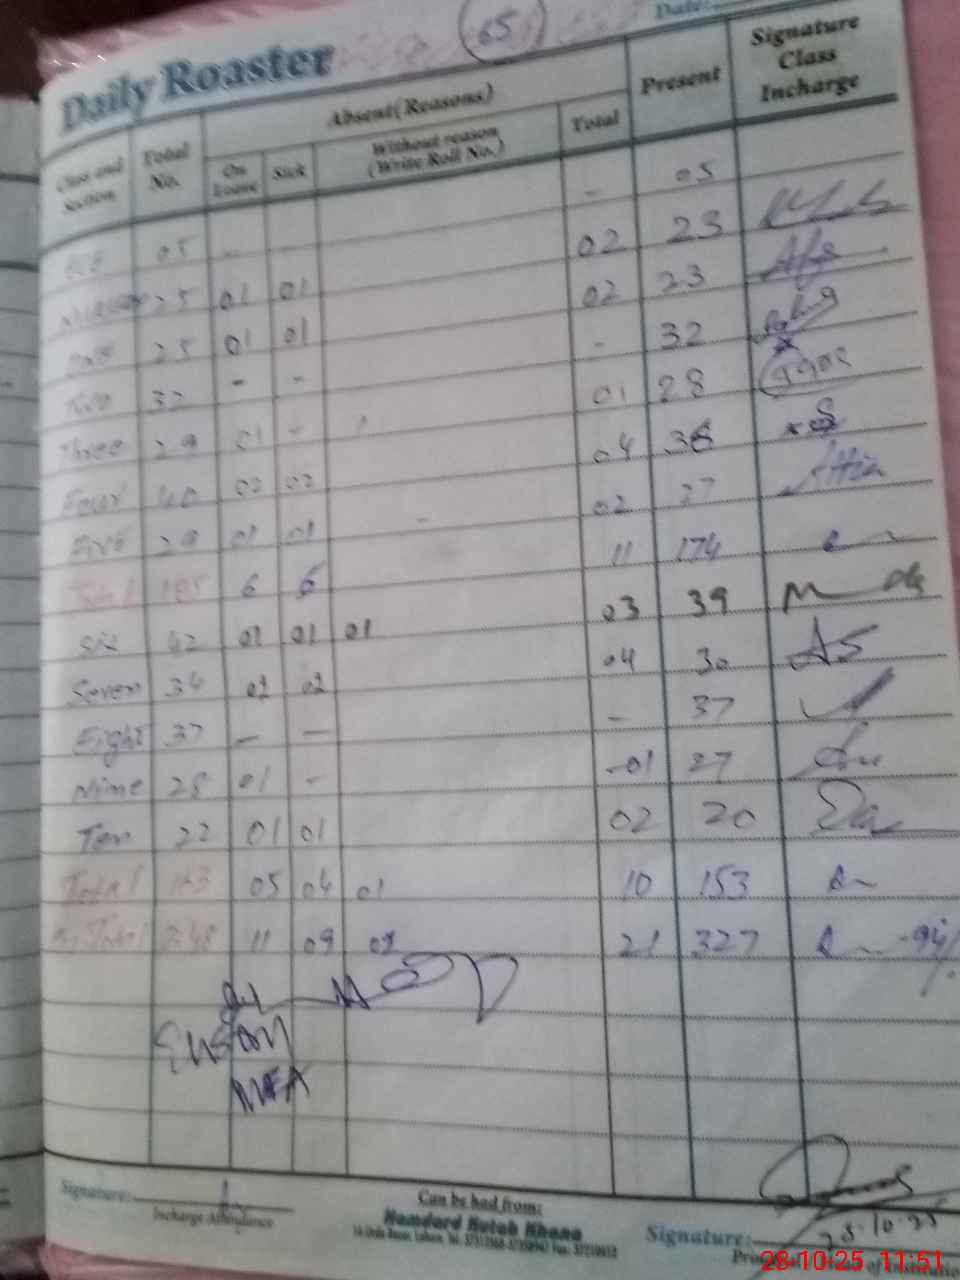 65
Date:
Daily Roaster
Class and Section
Total No.
Absent (Reasons)
On Leave
Sick
Without reason (Write Roll No.)
Total
Present
Signature Class Incharge
ECE 05 - - - 05
Nursery 25 01 01 02 23
One 25 01 01 02 23
Two 32 - - - 32
Three 29 01 - 01 28
Four 40 02 02 04 36
Five 29 01 01 - 02 27 Attia
Total 185 6 6 11 174
Six 42 01 01 01 03 39
Seven 34 02 02 04 30 AS
Eight 37 — — - 37
Nine 28 01 - -01 27
Ten 22 01 01 02 20
Total 163 05 04 01 10 153
G. Total 348 11 09 21 327 94%
MEA
Signature:
Incharge Attendance
Can be had from:
Hamdard Kutab Khana
Signature:
28.10.25
28-10-25 11:51